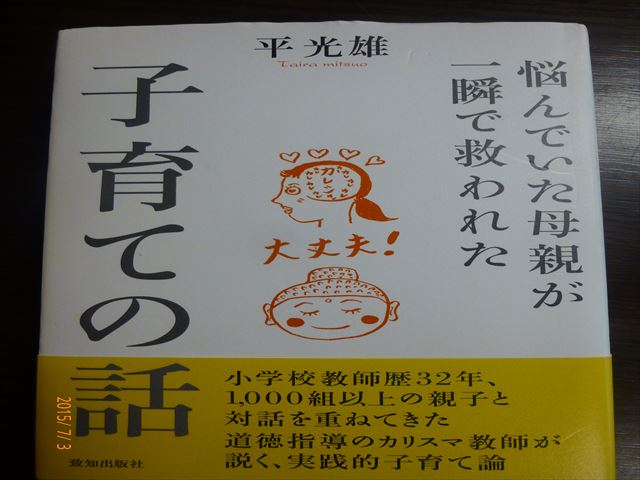 平光雄
Taira mitsuo
悩んでいた母親が
一瞬で救われた
子育ての話
カレン
大丈夫!
小学校教師歴32年、
1,000組以上の親子と
対話を重ねてきた
道徳指導のカリスマ教師が
説く、実践的子育て論
致知出版社
2015/7/3